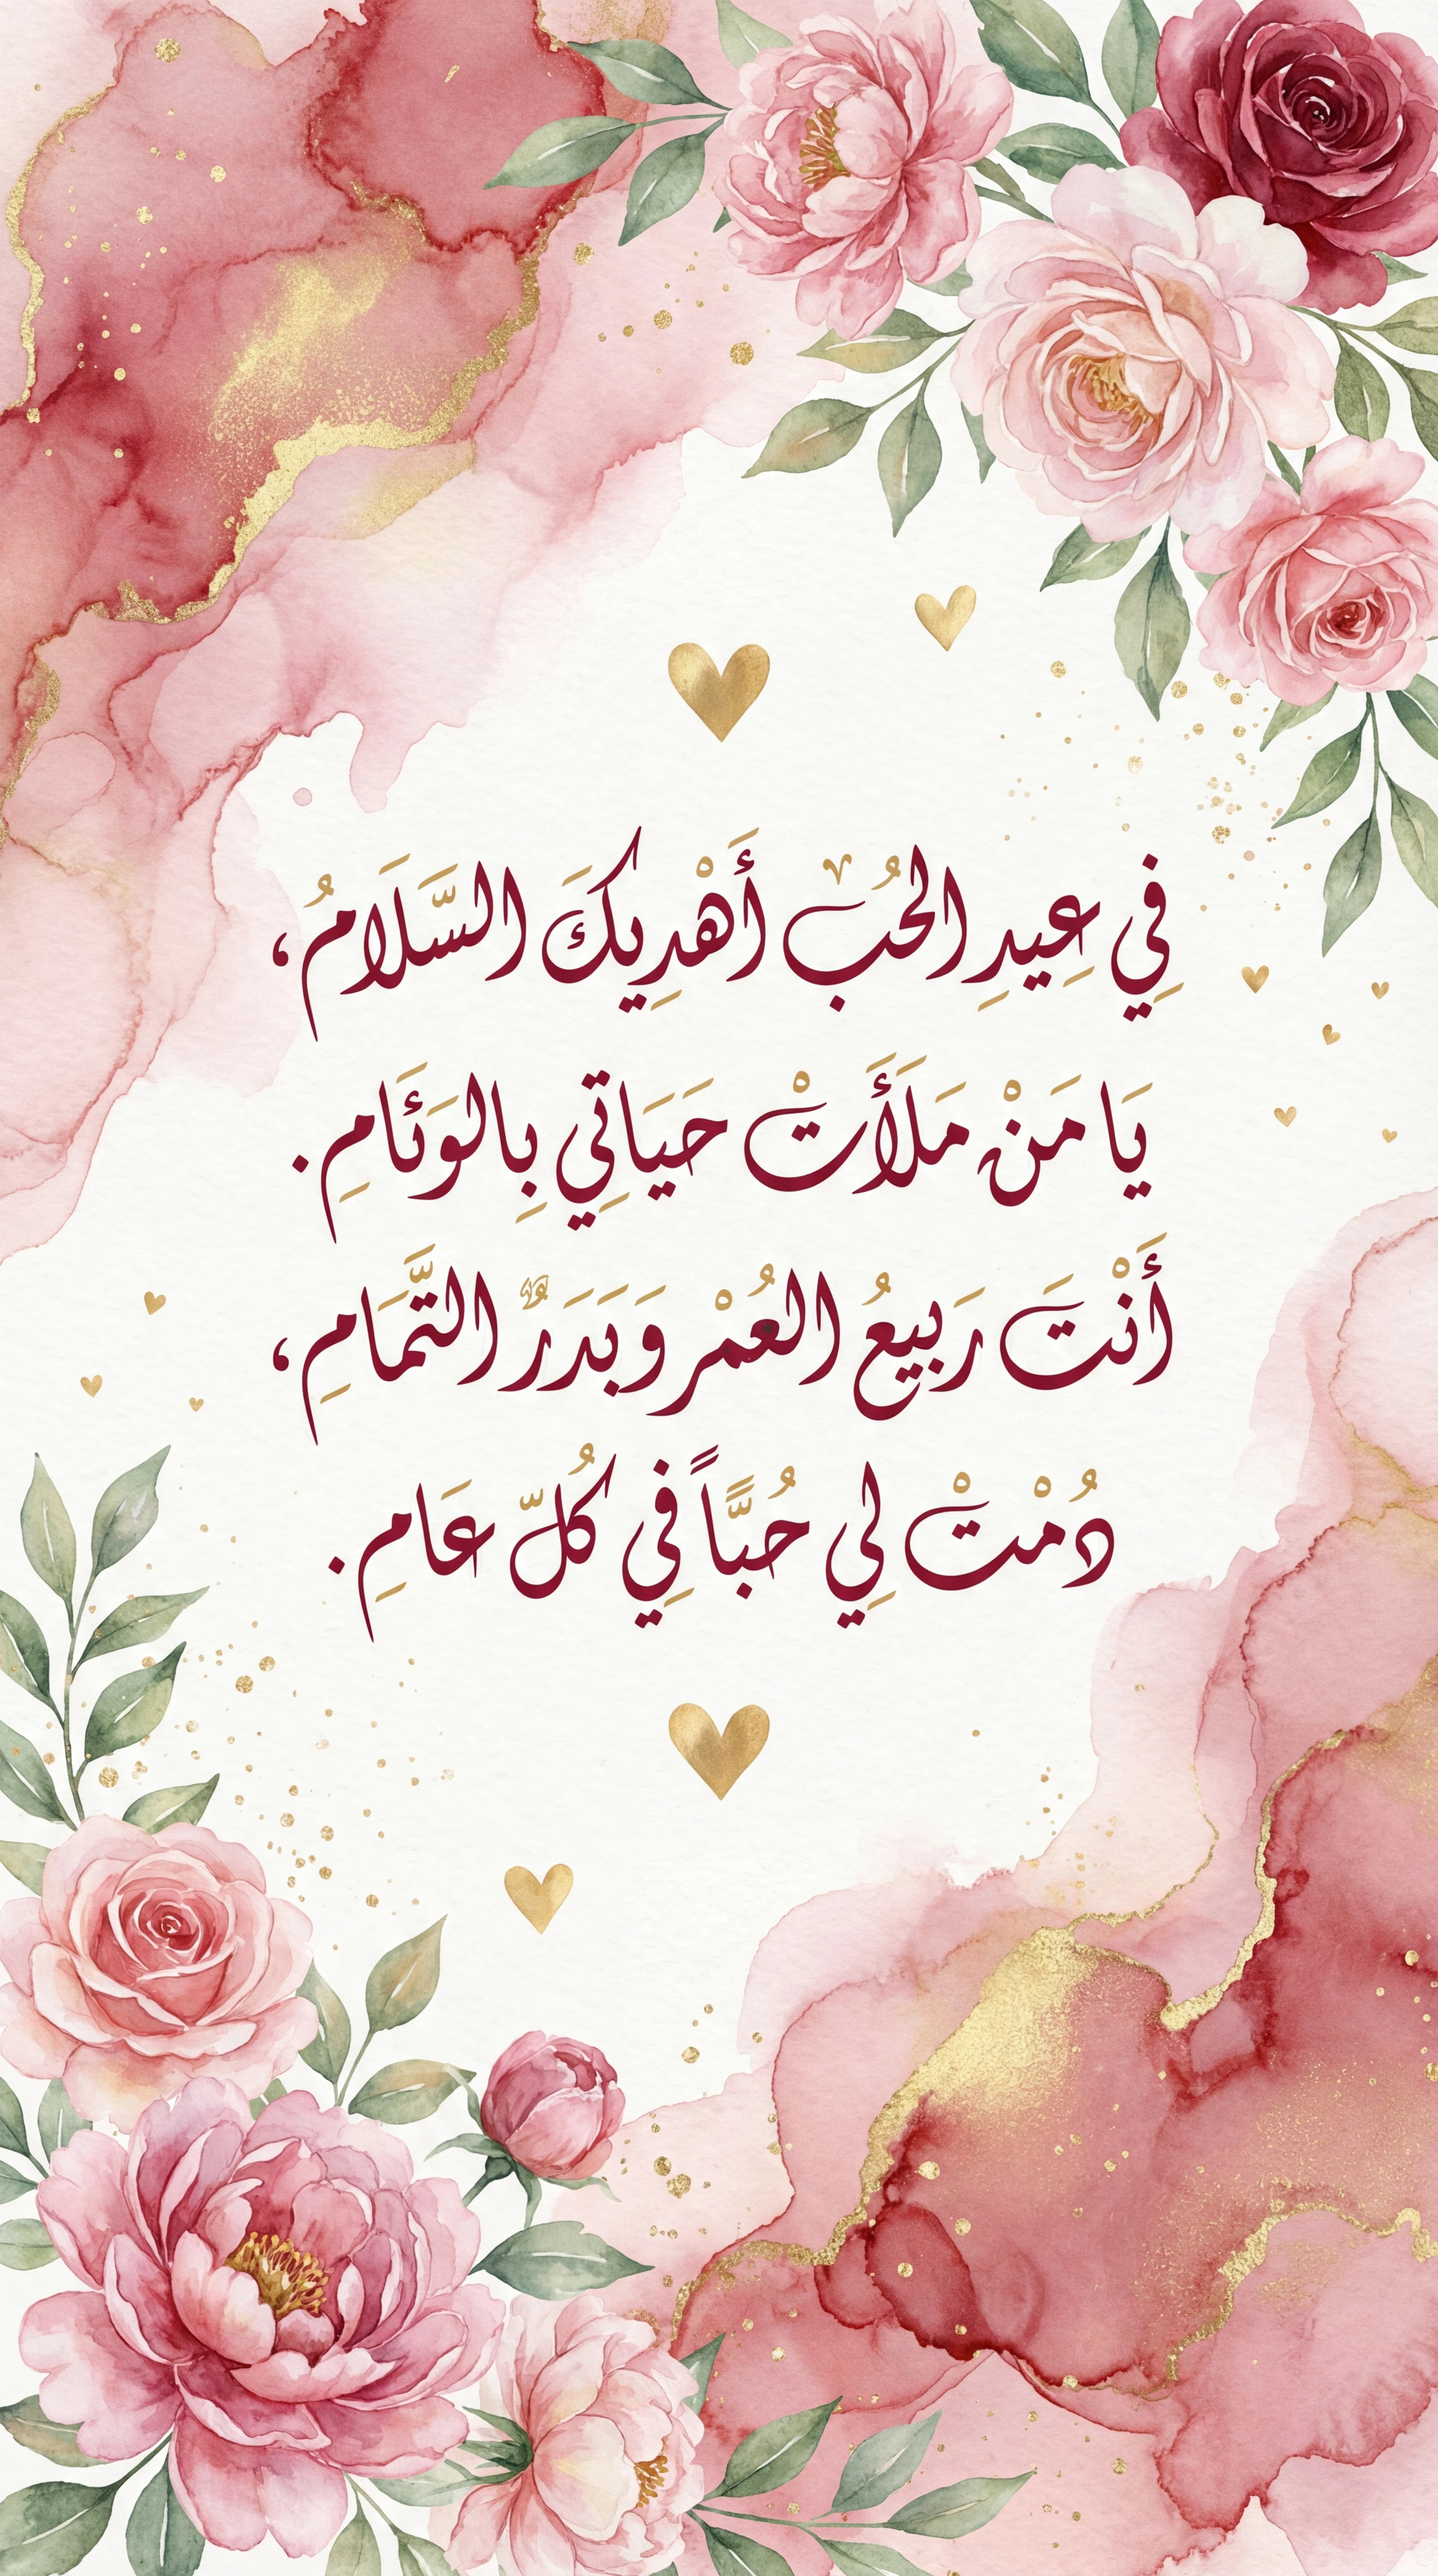 فِي عِيدِ الحُبْ أَهْدِيكَ السَّلَامُ،
يَا مَنْ مَلَأَتْ حَيَاتِي بِالوَئَامِ.
أَنْتَ رَبِيعُ العُمْر وَبَدَرٌ التَّمَامِ،
دُمْتْ لِي حُبًّاً فِي كُلّ عَامِ.